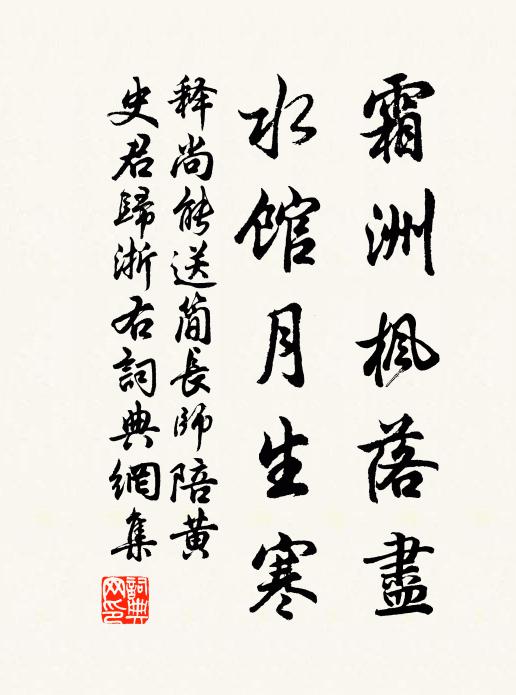 霜洲楓落盡
水馆月生寒
释尚能送简長師陪黄
史君歸浙右詞典網集
詞典
网印